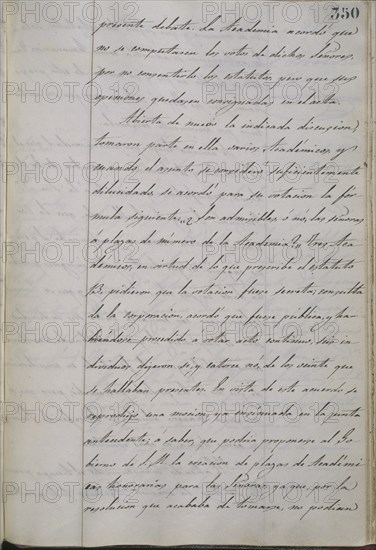 350
presente debate. La Academia acordó que
no se computasen los votos de dichos Señores,
por no consentirlo los estatutos, pero que sus
opiniones quedasen consignadas en el acta.
Abierta de nuevo la indicada discusion,
tomaron parte en ella varios Académicos, y
cuando el asunto se consideró suficientemente
dilucidado, se acordó para su votacion la fór-
mula siguiente: ¿Son admisibles ó no, las señoras
á plazas de número de la Academia? Tres Aca-
démicos, en virtud de lo que prescribe el estatuto
13, pidieron que la votacion fuese secreta; consulta-
da la corporacion, acordó que fuese publica, y ha-
biéndose procedido á votar acto continuo, seis in-
dividuos dijeron sí, y catorce nó, de los veinte que
se hallaban presentes. En vista de este acuerdo se
reprodujo una mocion, ya enunciada en la junta
antecedente; á saber, que podria proponerse al Go-
bierno de S. M. la creacion de plazas de Académi-
cas honorarias para las Señoras, ya que, por la
resolucion que acababa de tomarse, no podian
PHOTO12